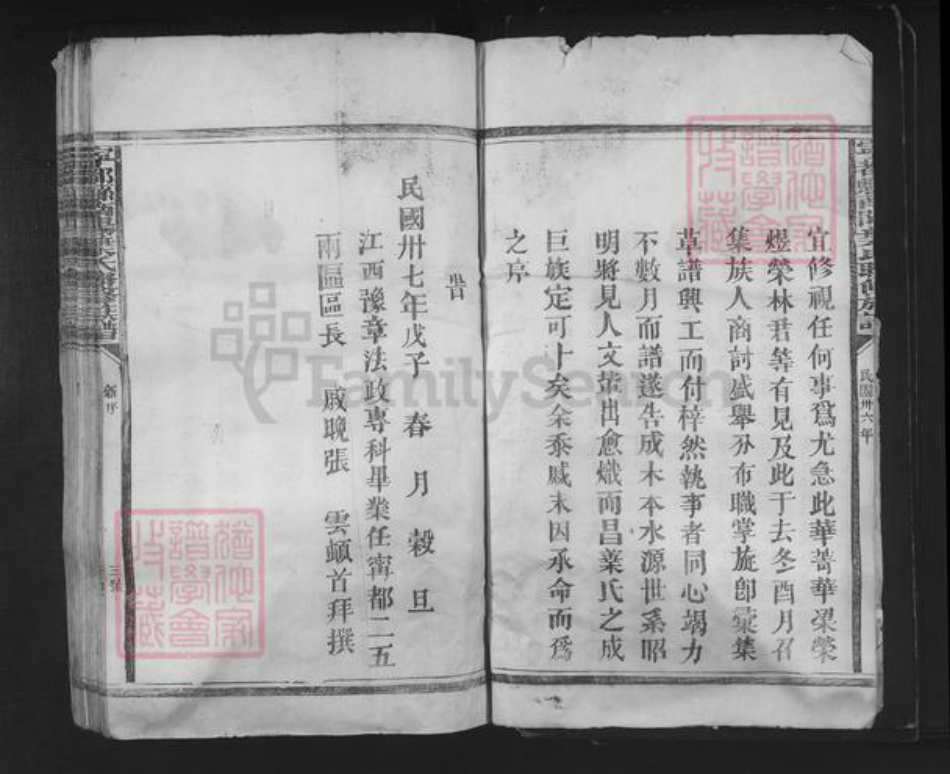 宜修視任何事爲尤急此華菁華梁榮
煜榮林君等有見及此于去冬酉月召
集族人商討盛舉分布職掌旋卽彙集
草譜興工而付梓然執事者同心竭力
不數月而譜遂告成木本水源世系昭
明將見人文蔚出愈熾而昌葉氏之成
巨族定可卜矣余忝戚末因承命而爲
之序
旹
民國卅七年戊子 春 月 榖 旦
江西豫章法政專科畢業任甯都二五
兩區區長 戚晚張 雲頓首拜撰
民國卅六年
新序
FamilySearch